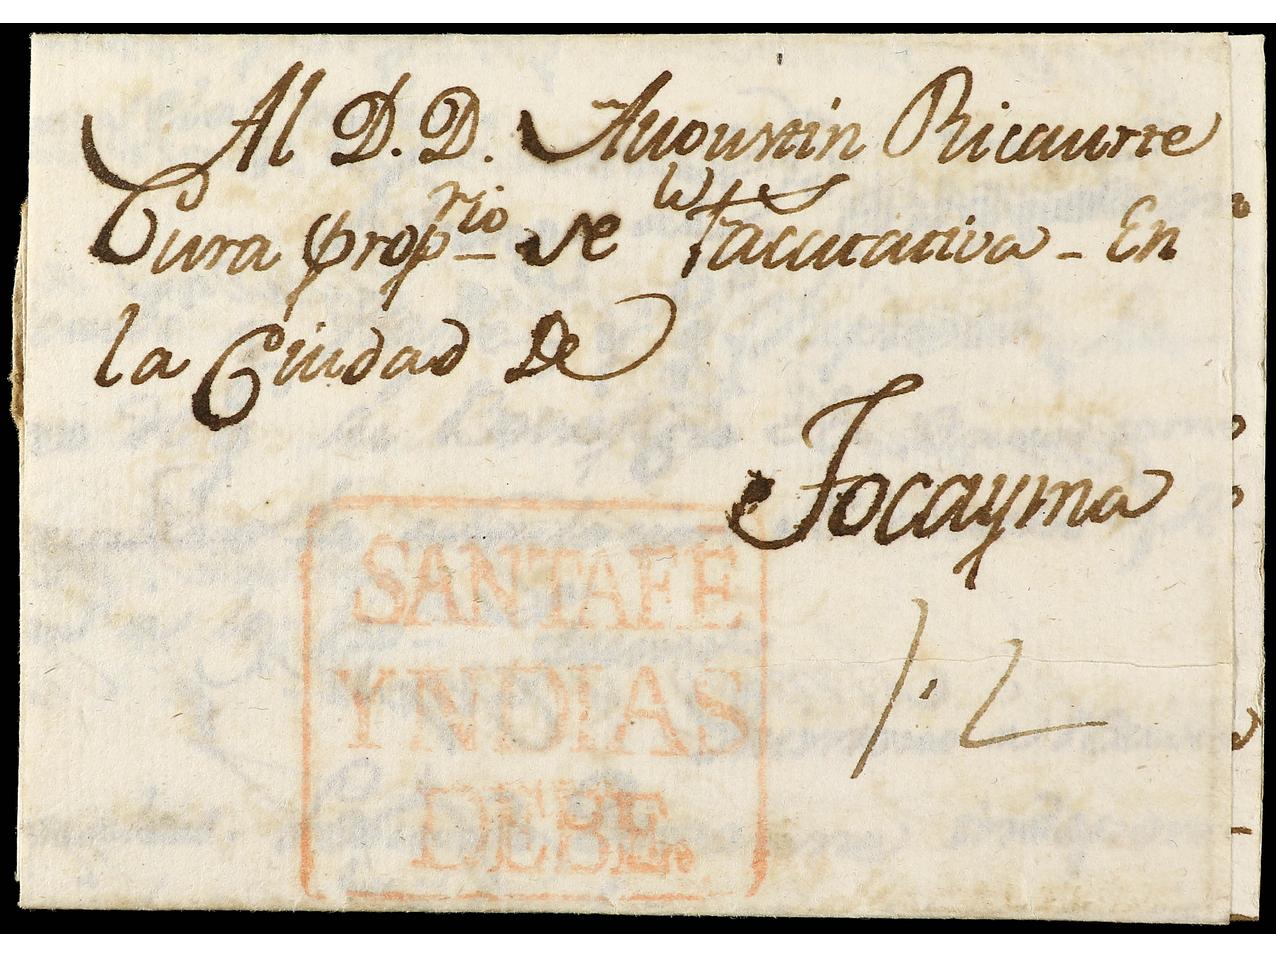 Al D. D. Augustin Ricaurte
Cura proprio de Tacatativa - En
la Ciudad De
Tocayma
1.2
SANTAFE
YNDIAS
DEBE.